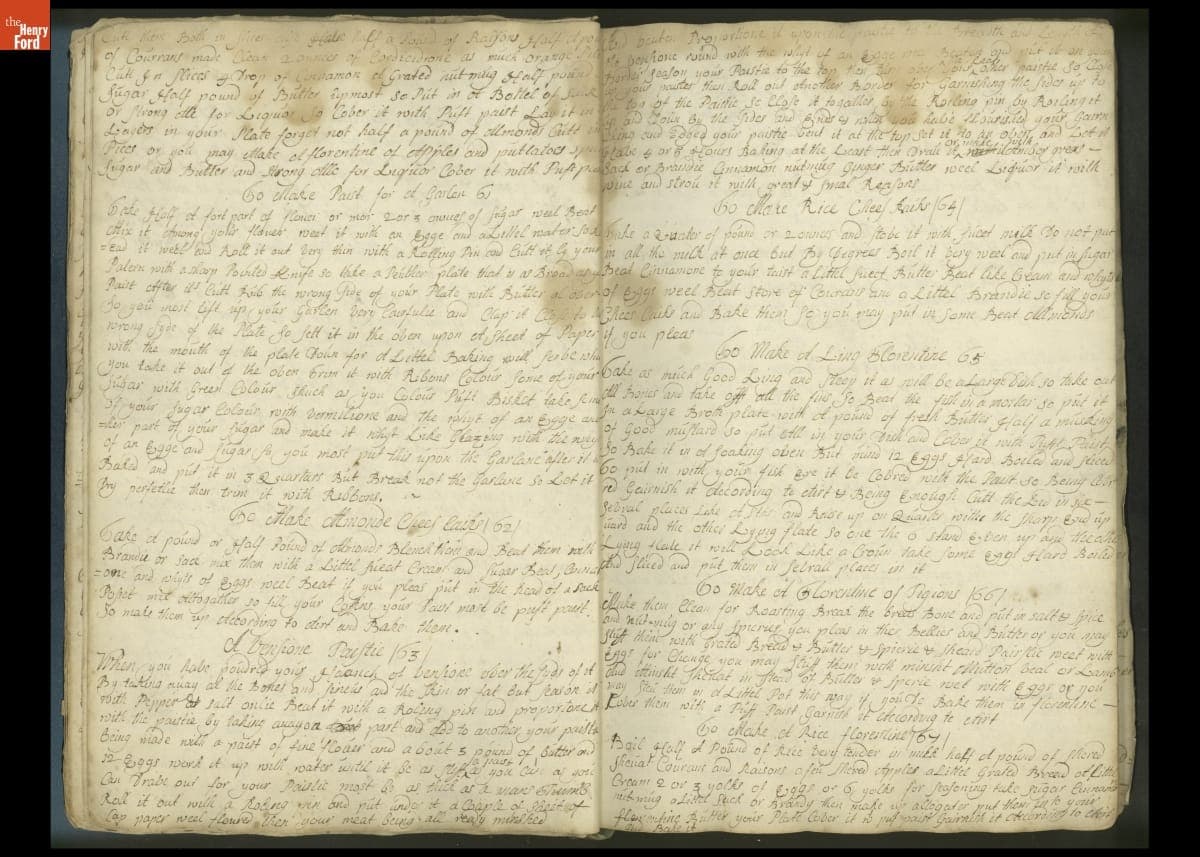 the
Henry
Ford
Cutt them Both in slices half a Pound of Raisons Half a pound
of Courrans made Clean 2 ounces of as much orange
Cutt In Slices a Drop of Cinnamon a Grated nutmug Half pound
Sugar Half pound of Butter upmost so Put in a Bottel of Sack
or strong Alle for Liquor so Cober it with Puft paist Lay it in
Loyers in your Plate forget not half a pound of Almonds Cutt in
Pices or you may Make a florentine of Apples and puttatoes
Sugar and Butter and strong Alle for Liquor Cober it with Puft
To Make Past for a Garlen 61
Take Half a fort part of flower or mor 2 or 3 ounces of Sugar weel Beat
Mix it among your flower weet it with an Egge and a Littel water
it weel and Roll it out Very thin with a Rolling Pin and Cutt it by your
Patern with a sharp Pointed Knife so take a Peuther plate that is as Broad as
Paist after its Cutt Rub the wrong Side of your Plate with Butter all over
So you most lift up your Garlen Very Carfulie and Clap it Closs to the
wrong syde of the Plate so sett it in the oben upon a Sheet of Paper
with the mouth of the plate Doun for a Littel Baking will serbe
you take it out of the oben trim it with Ribons Colour some of your
Sugar with Green Colour shuch as you Colour Puft Bisket take some
of your Sugar Colour with Vermilione and the whyt of an Egge
part of your sugar and make it whyt Like Glazeng with the whyt
of an Egge and Sugar so you most put this upon the Garlane after it is
Baked and put it in 3 Quarters But Break not the Garlane so Let it
Dry perfetlie then trim it with Ribbons.
To Make Almonde Chees Caiks /62/
Take a pound or Half Pound of Almonds Blench them and Beat them with
Brandie or Sack mix them with a Littel sweet Cream and Sugar Beat, Cinna
=one and whyts of Eggs weel Beat if you pleas put in the head of a Sack
Poset mix altogather so fill your Coffens your Past most be puft past
So make them up according to airt and Bake them.
A Vensione Paistie /63/
When you have poudred your Haanch of bensione ober the Syds of it
By taking away all the Bones and Sineus and the Skin or fat But Season it
with Pepper & salt onlie Beat it with a Roleng pin and proportione it
with the paistie by taking away on part and add to another your paist
Being made with a paist of fine flower and about 3 pound of butter and
12 Eggs work it up with water until it be as stiff a paist as you Can as you
Can Drabe out for your Paistie most be as thick as a mans Thumb
Roll it out with a Roleng pin and put under it a Couple of sheets of
Cap paper weel floured then your meat being all ready minshed
And beaten Proportione it upon the paistie to the Breadth and Length
bensione round with the whyt of an Egge and put it on your
Border season your Paistie to the top then lay your other paistie so Close
up your paistes then Roll out another Border for Garnishing the Sides up to
the top of the Paistie so Close it togather by the Roleing pin by Roling it
up and doun by the Sides and Ends & when you habe flourished your Garn
ising and Edged your paistie bent it at the top set it to an oben and Let it
habe 4 or 5 Hours Baking at the Least then Draw it
Sack or Brandie Cinnamon nutmug Genger Butter weel Liquor it with
wine and strou it with great & smal Reasons
To Make Rice Chees Kaiks /64/
Take a Quater of pound or 2 ounces and stobe it with sweet milk Do not put
in all the milk at once but By Degrees Boil it bery weel and put in sugar
Beat Cinnamone to your taist a Littel sweet Butter Beat like Cream and whyts
of Eggs weel Beat store of Courans and a Littel Brandie so fill your
Chees Caiks and Bake them so you may put in some Beat Allmonds
if you pleas
To Make a Ling Florentine 65
Take as much Good Ling and steep it as will be a Large Dish so take out
All Bones and take off all the fins so Beat the fish in a mortar so put it
In a Large Broth plate with a pound of fresh Butter Half a mutchking
of Good mustard so put All in your Dish and Cober it with Pufft Paist
So Bake it in a soaking oben But mind 12 Eggs Hard Boiled and sliced
to put in with your fish Ere it be Cobred with the Paist so Being Cob
red Gairnish it according to airt & Being Enough Cutt the Leed in six
sebral pleaces Like a star and Raise up on Quarter with the sharp End up
ward and the other Lying flate so one the 6 stand Eben up and the other
Lying flate it will Look Like a Crown take some Eggs Hard Boiled
And sliced and put them in sebrall places in it
To Make a Florentine of Pigions /66/
Make them Clean for Roasting Break the brest Bone and put in salt & spice
and nut-mug or any spicries you pleas in ther Bellies and Butter or you may
stuff them with Grated Bread & Butter & spicrie & Sheard Pairslie weet with
Eggs for Change you may stuff them with minsht Mutton beal or Lamb
and minsht Shewat in stead of Butter & spicrie weet with Eggs or you
may Stew them in a Littel Pot this way if you Do Bake them in florentine
Cober them with a Puff Paist Garnish it according to airt
To Make a Rice florentine /67/
Boil Half a Pound of Rice bery tender in milk half a pound of Shred
Shewat Courans and Raisons a few Shred Apples a Littel Grated Breed a Little
Cream 2 or 3 yolks of Eggs or 6 yolks for seasoning take Sugar Cinnamon
nutmug a Little Sack or Brandy then make up altogater put them in to your
florentine Butter your Plate Cober it with puf paist Gairnish it according to airt
and Bake it